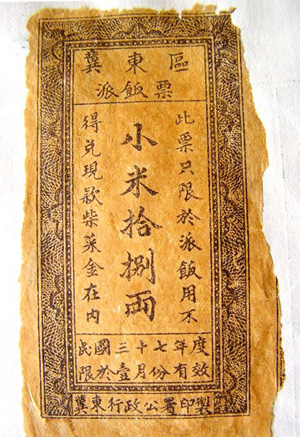 冀東區
派飯票
此票只限於派飯用不
小米拾捌兩
得兌現款柴菜金在内
民國三十七年度
限於壹月份有效
冀東行政公署印製